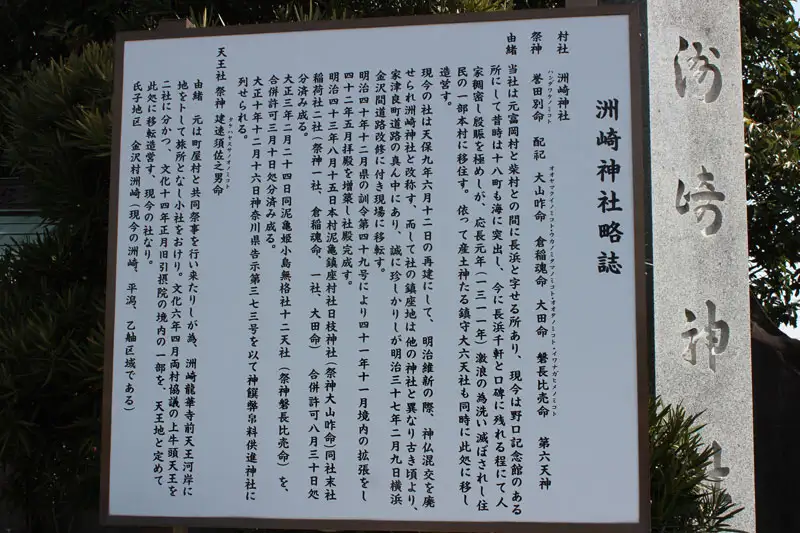 洲崎神社略誌
村社　洲崎神社
祭神　誉田別命　配祀　大山咋命　倉稲魂命　大田命　磐長比売命　第六天神
ホンダワケノミコト　オオヤマクイノミコト・ウカノミタマノミコト・オオタノミコト・イワナガヒメノミコト
由緒　当社は元富岡村と柴村との間に長浜と字せる所あり、現今は野口記念館のある
所にして昔時は十八町も海に突出し、今に長浜千軒と口碑に残れる程にて人
家稠密し殷賑を極めしが、応長元年（一三一一年）激浪の為洗い滅ぼされし住
民の一部本村に移住す。依つて産土神たる鎮守大六天社も同時に此処に移し
造営す。
現今の社は天保九年六月十二日の再建にして、明治維新の際、神仏混交を廃
せられ洲崎神社と改称す、而して社の鎮座地は他の神社と異なり古き頃より、
家津良町道路の真ん中にあり、誠に珍しかりしが明治三十七年二月九日横浜
金沢間道路改修に付き現場に移転す。
明治四十年十二月県の訓令第四十九号により四十一年十一月境内の拡張をし
四十二年五月拝殿を増築し社殿完成す。
明治四十三年八月十五日本村泥亀鎮座村社日枝神社（祭神大山咋命）同社末社
稲荷社二社（祭神一社、倉稲魂命、一社、大田命）合併許可八月三十日処
分済み成る。
大正三年二月二十四日同泥亀姫小島無格社十二天社（祭神磐長比売命）を、
合併許可三月十日処分済み成る。
大正十年十二月十六日神奈川県告示第三七三号を以て神饌幣帛料供進神社に
列せられる。
天王社　祭神　建速須佐之男命
タケハヤスサノオノミコト
由緒　元は町屋村と共同祭事を行い来たりしが為、洲崎龍華寺前天王河岸に
地をト して旅所となし小社をおけり。文化六年四月両村協議の上牛頭天王を
二社に分かつ、文化十四年正月旧引摂院の境内の一部を、天王地と定めて
此処に移転造営す、現今の社なり。
氏子地区　金沢村洲崎（現今の洲崎、平潟、乙舳区域である）
洲崎神社